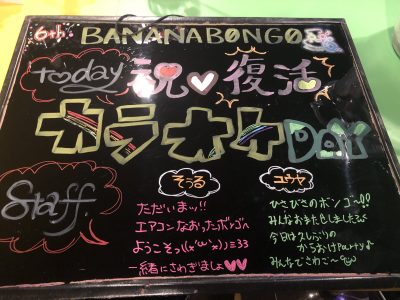 6th. BANANABONGO'S
today 祝♡復活
カラオケDAY
Staff.
そぅる
ただいまッ!!
エアコンなおったボンゴへ
ようこそっ((x'ω'x))≡33
一緒にさわぎましょ♥♥
ユウマ
ひさびさのボンゴ〜!!
みんなおまたせしました
今日は久しぶりの
からおけParty♪
みんなでさわご〜